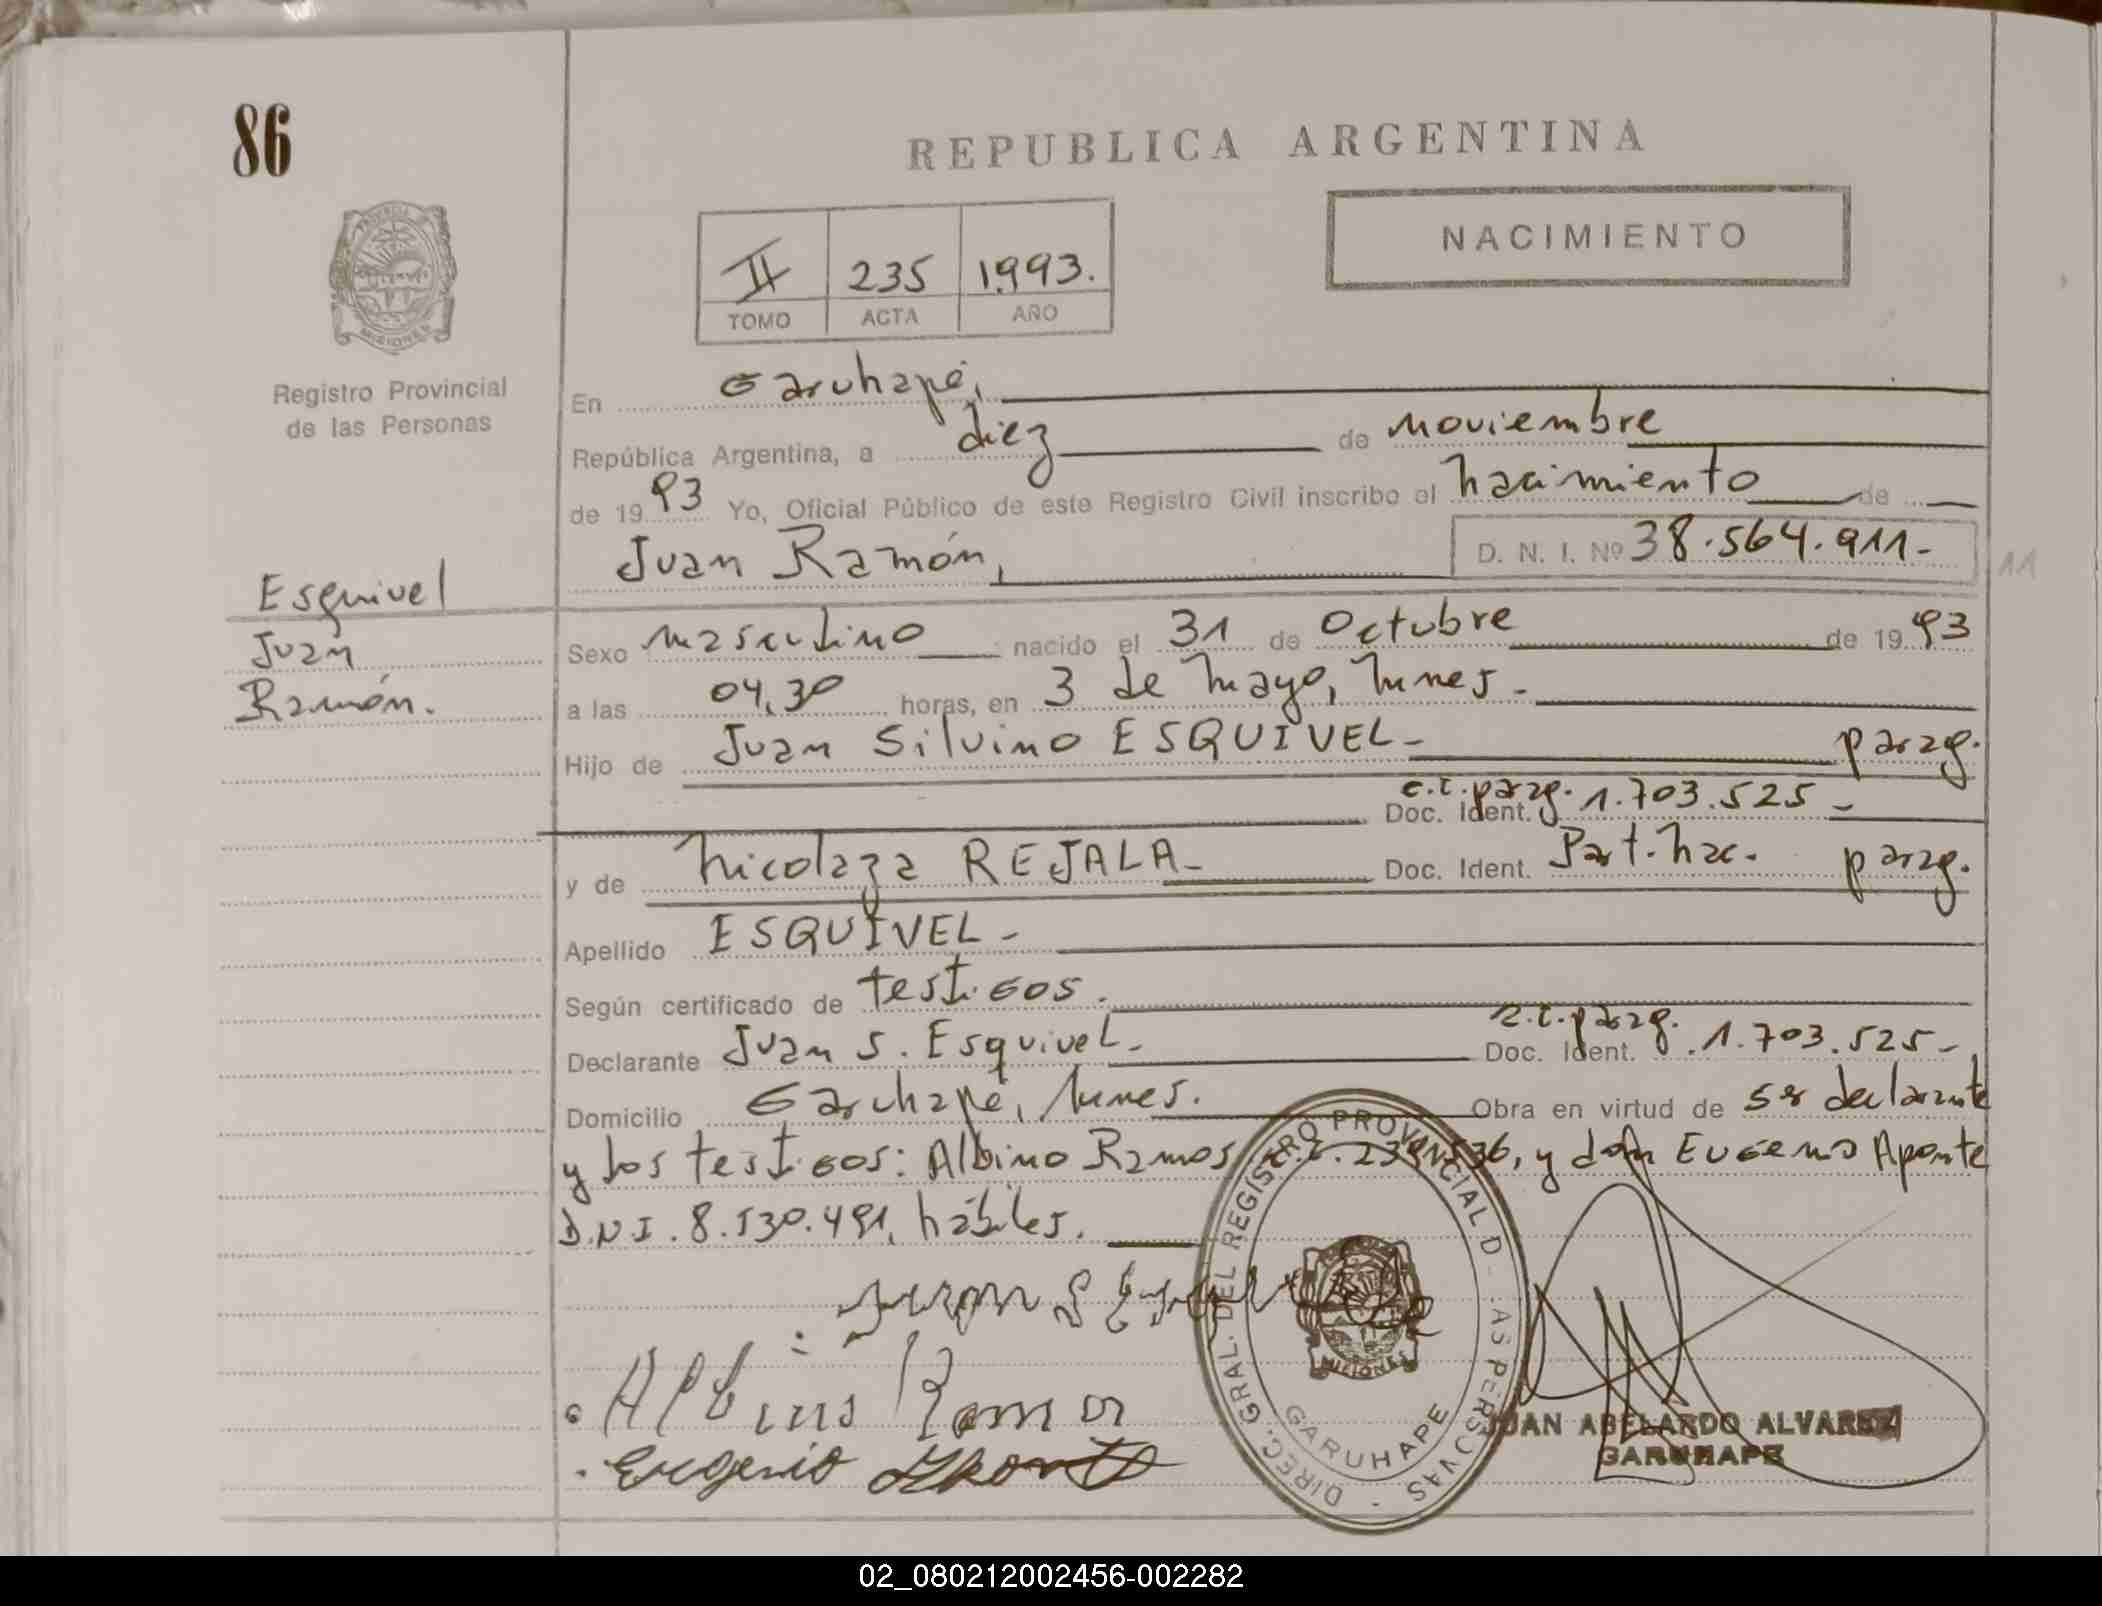 86
REPUBLICA ARGENTINA
NACIMIENTO
II 235 1.993.
TOMO ACTA AÑO
PROVINCIA DE MISIONES
Registro Provincial
de las Personas
En Garuhapé,
República Argentina, a diez de noviembre
de 19 93 Yo, Oficial Público de este Registro Civil inscribo el nacimiento de
Juan Ramón, D. N. I. Nº 38.564.911.-
11
Esquivel
Juan
Ramón.
Sexo masculino nacido el 31 de Octubre de 19 93
a las 04,30 horas, en 3 de Mayo, Mnes.-
Hijo de Juan Silvino ESQUIVEL- parag.
Doc. Ident. c.i. parag. 1.703.525-
y de Nicolaza REJALA- Doc. Ident. Part. Nac. parag.
Apellido ESQUIVEL-
Según certificado de testigos.
Declarante Juan S. Esquivel- Doc. Ident. c.i. parag. 1.703.525-
Domicilio Garuhapé, Mnes. Obra en virtud de ser declarante
y los testigos: Albino Ramos, y don Eugenio Aponte
D.N.I. 8.530.491, hábiles.
Juan S Esquivel
Albino Ramos
Eugenio Aponte
DIREC. GRAL. DEL REGISTRO PROVINCIAL D - AS PERSONAS -
MISIONES
GARUHAPE
JUAN ABELARDO ALVAREZ
GARUHAPE
02_080212002456-002282